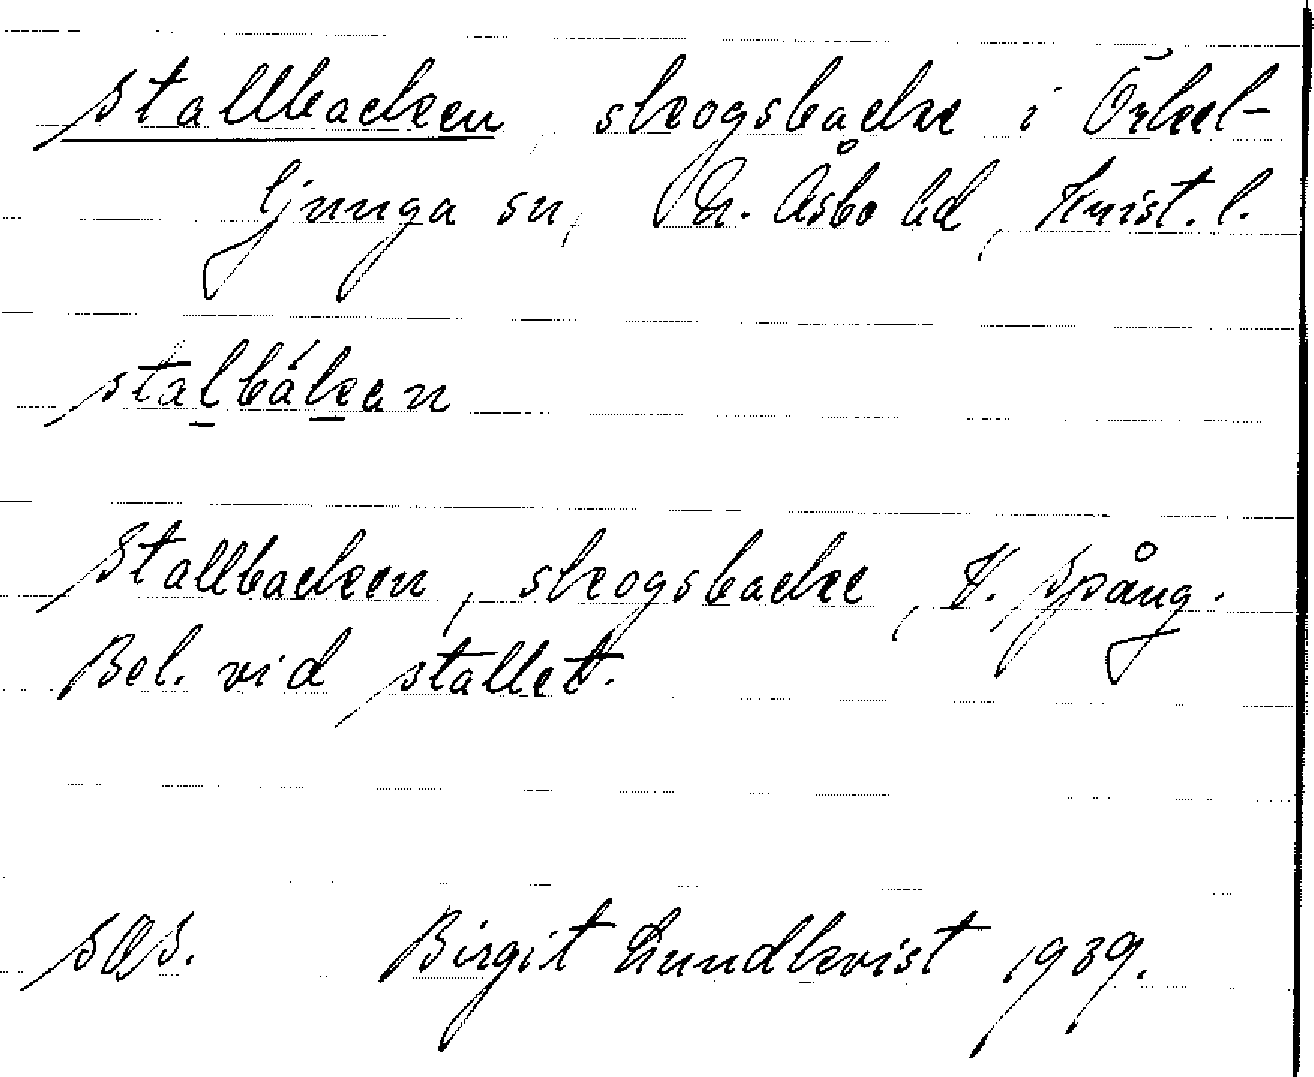 Stallbacken, skogsbacke i Örkel-
ljunga sn, N. Åsbo hd, Krist. l.
stalbákan
Stallbacken, skogsbacke, V. Spång.
Bel. vid stallet.
SOS. Birgit Lundkvist 1939.